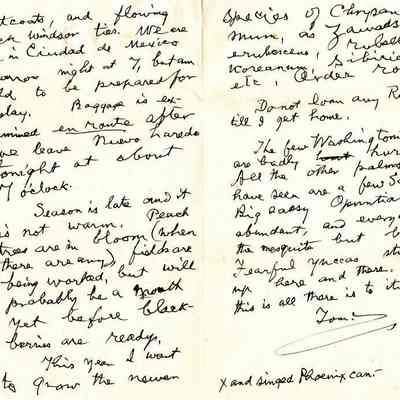 stcoats, and flowing
ck windsor ties. We are
in Ciudad de Mexico
orrow night at 7, but am
ld to be prepared for
elay. Baggage is ex-
amined en route after
we leave Nuevo Laredo
tonight at about
7 o'clock.
Season is late and it
is not warm. Peach
trees are in bloom (when
there are any) fields are
being worked, but will
probably be a month
yet before black-
berries are ready.
This year I want
to grow the newer
Species of Chrysan
mum, as Zawads
erubescens, rubell
Koreanum, Sibiric
etc, Order ro
Do not loan any R
till I get home.
The few Washingtoni
are badly hur
All the other palms
have seen are a few Sa
Big sassy Opuntia
abundant, and every
the mesquite but
Fearful yuccas st
up here and there.
this is all there is to it
Tom.
x and singed Phoenix can.